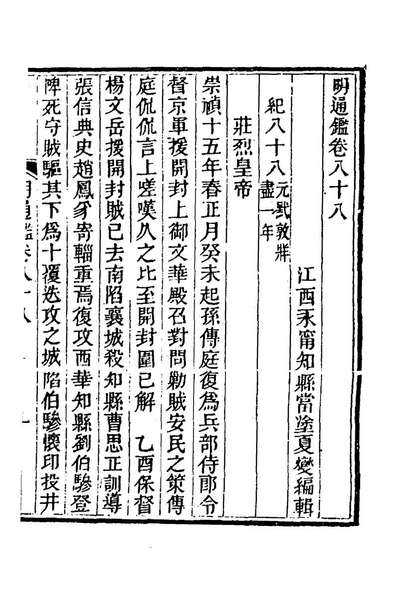 明通鑑卷八十八
江西永甯知縣當塗夏燮編輯
紀八十八元黓敦牂盡一年
莊烈皇帝
崇禎十五年春正月癸未起孫傳庭復爲兵部侍郎令
督京軍援開封上御文華殿召對問勦賊安民之策傳
庭侃侃言上嗟嘆久之比至開封圍已解 乙酉保督
楊文岳援開封賊已去南陷襄城殺知縣曹思正訓導
張信典史趙鳳豸寄輜重焉復攻西華知縣劉伯驂登
陴死守賊驅其下爲十覆迭攻之城陷伯驂懷印投井
明通鑑卷八十八 一